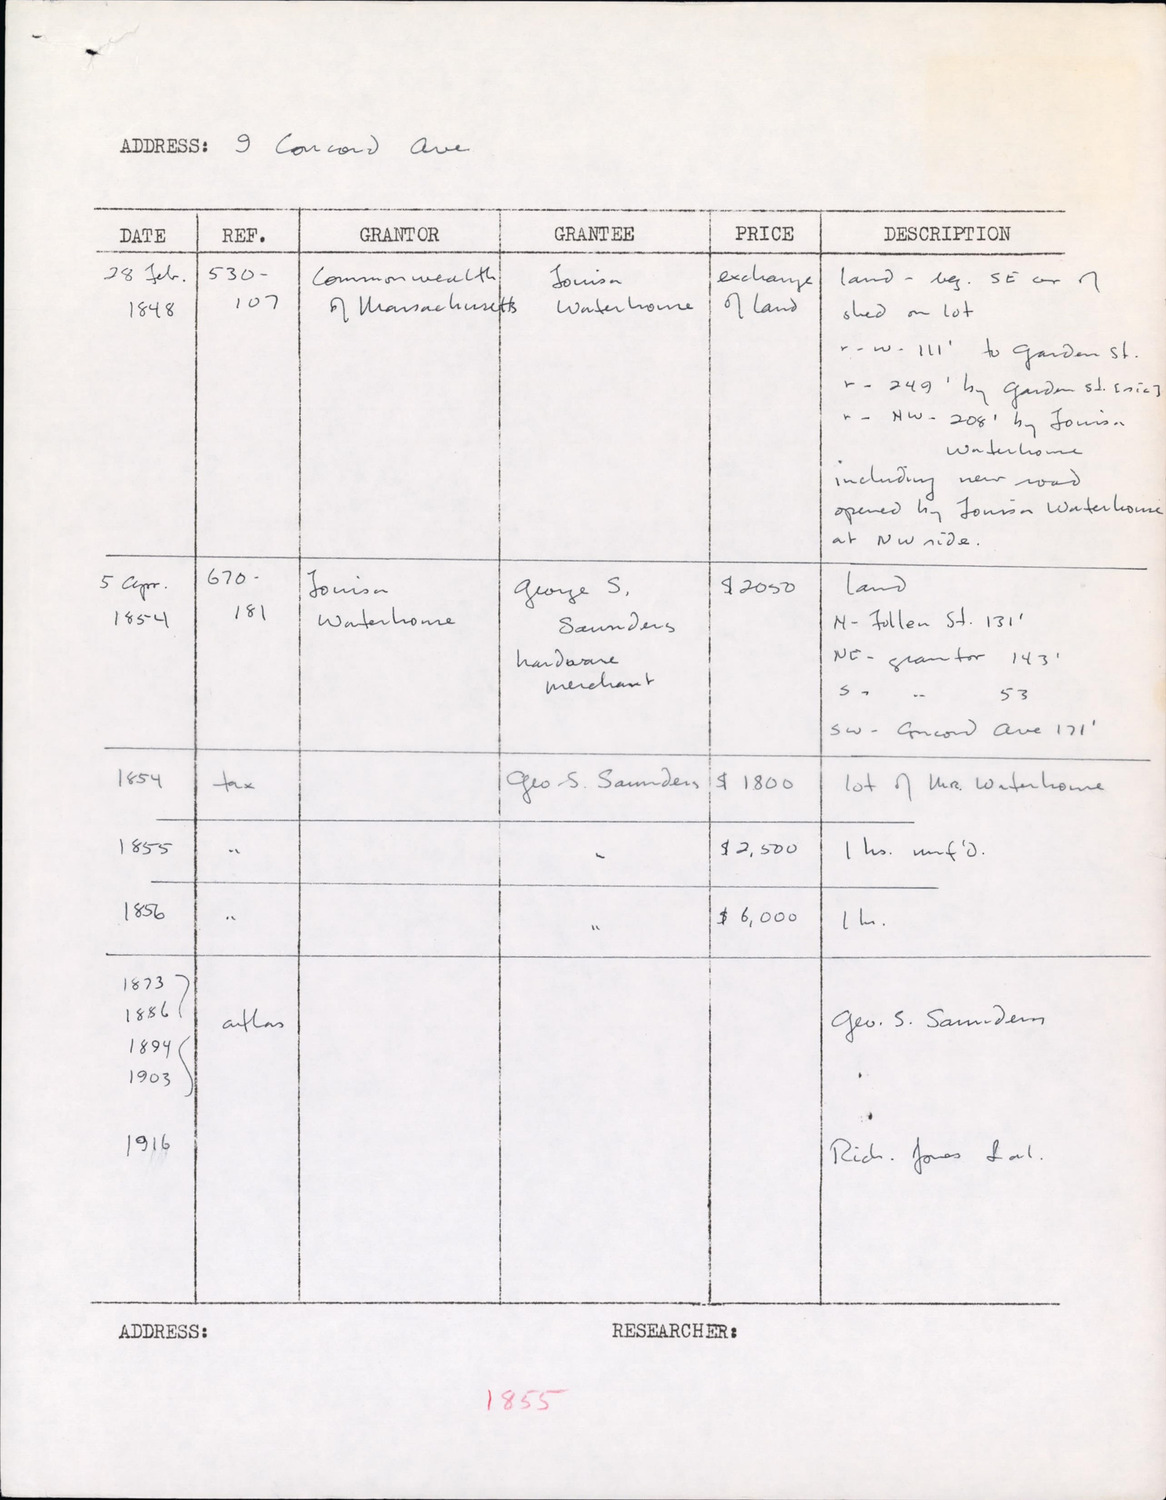 ADDRESS: 9 Concord Ave
DATE REF. GRANTOR GRANTEE PRICE DESCRIPTION
28 Feb. 530- Commonwealth Louisa exchange land - beg. SE cor of
1848 107 of Massachusetts Waterhouse of land shed on lot
r - w - 111' to Garden St.
r - 249' by Garden St. [sic]
r - NW - 208' by Louisa
Waterhouse
including new road
opened by Louisa Waterhouse
at NW side.
5 Apr. 670- Louisa George S. $2050 land
1854 181 Waterhouse Saunders N - Follen St. 131'
hardware NE - grantor 143'
merchant S - " 53
SW - Concord Ave 171'
1854 tax Geo. S. Saunders $1800 lot of Mrs. Waterhouse
1855 " " $2,500 1 hs. unf'd.
1856 " " $6,000 1 h.
1873
1886 atlas Geo. S. Saunders
1894
1903
1916 Rich. Jones et al.
ADDRESS: RESEARCHER:
1855